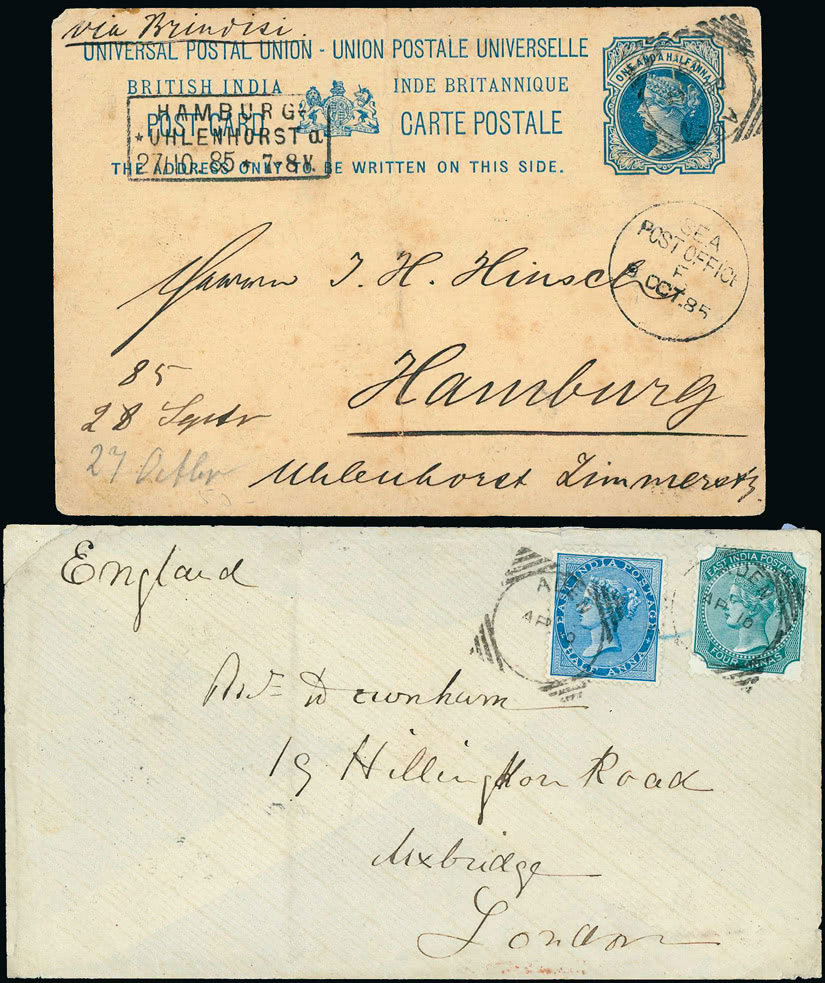 via Brindisi
UNIVERSAL POSTAL UNION - UNION POSTALE UNIVERSELLE
BRITISH INDIA INDE BRITANNIQUE
POST CARD CARTE POSTALE
THE ADDRESS ONLY TO BE WRITTEN ON THIS SIDE.
ONE AND A HALF ANNA
HAMBURG-
*UHLENHORST a
27/10 85 * 7-8 V.
SEA
POST OFFICE
F
OCT. 85
Herrn J. H. Hinsch
Hamburg
85
28 Septr
27 Octbr
Uhlenhorst Zimmerstr
England
ADEN
AP
EAST INDIA POSTAGE
HALF ANNA
ADEN
AP 16
EAST INDIA POSTAGE
FOUR ANNAS
Downham
19 Hillington Road
Uxbridge
London